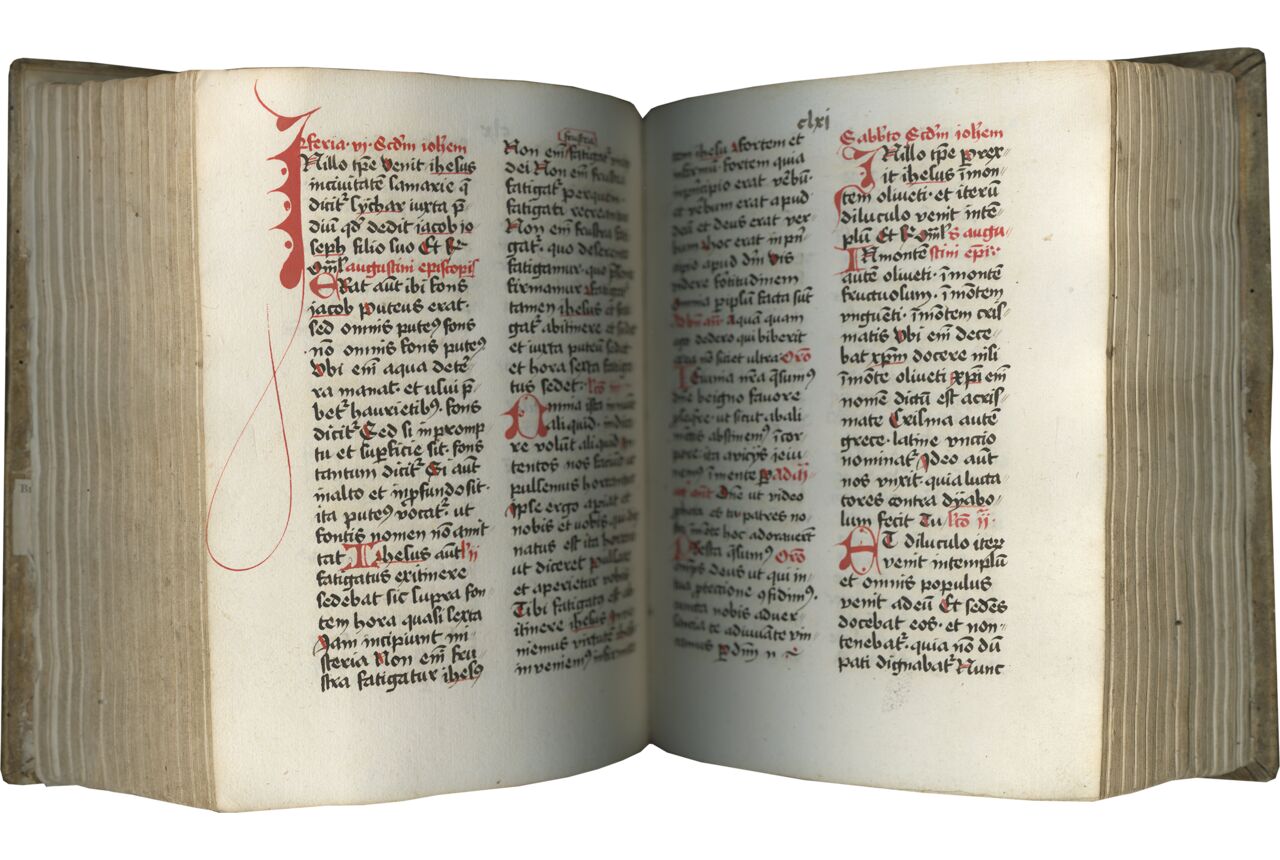 feria · vi · Scdm ioħem
In illo tp̄e venit ihesus
in ciuitatē samarie q̄
dicit᷑ sychar iuxta p̄
diū qd̓ dedit iacob io
seph filio suo Et
augustini episcopi
Erat aūt ibi fons
iacob puteus erat ·
sed omnis puteꝰ fons
nō omnis fons puteꝰ
Vbi em̄ aqua de tēr
ra manat · et usui p̄
bet᷑ hauriētibꝰ · fons
dicit᷑ Sed si in promp
tu et supficie sit · fons
tantum dicit᷑ Si aūt
in alto et in pfundo sit ·
ita puteꝰ vocat᷑ · ut
fontis nomen nō amit
tat Ihesus aūt lc̄ ii
fatigatus ex itinere
sedebat sic supra fon
tem hora quasi sexta
Iam incipiunt mi
steria Non em̄ fru
stra fatigatur ihesꝰ
frustra
Non em̄ fatigat᷑
dei Non em̄ frustra
fatigat᷑ per quem
fatigati recreant᷑
Non em̄ frustra fati
gat᷑ · quo deserente
fatigamur · quo p̄sente
firmamur Fatigat᷑
tamen ihesus et fati
gat᷑ ab itinere et sedet
et iuxta puteū sedet
et hora sexta fatiga
tus sedet · lc̄o iii
Omnia ista innuūt
aliquid · indica
re volūt aliquid in
tentos nos faciūt
pulsemus hortant᷑
Ipse ergo apiat et
nobis et vobis qui dig
natus est ita hortari
ut diceret pulsate
et aperietur vobis
Tibi fatigatꝰ est ab
itinere ihesus Inue
nimus virtutē ihesum
inuenimꝰ infirmum
clxi
tem ihesū Fortem et
infirmū · fortem quia
in principio erat v̄bū ·
et verbum erat apud
deū et deus erat ver
bum hoc erat in prin
cipio apud dm̄ Vis
videre fortitudinem
omnia p ip̄m facta sūt
aquā quam
ego dedero qui biberit
ex ea nō sitiet ultra Orō
Ieiunia nr̄a qs̄umꝰ
dn̄e benigno fauore
et sicut ab ali
mētis abstinemꝰ in cor
pore ita a vicijs ieiu
nemꝰ in mente p ad mḡ
Dn̄e ut video
propheta es tu patres no
stri in mōte hoc adorauerūt
Presta qs̄umꝰ Orō
om̄ps deus ut qui in
tua ptectione ꝯfidimꝰ ·
cuncta nobis aduer
santia te adiuuāte vin
camus p dn̄m n
Sabb̄to Scdm ioħem
In illo tp̄e prex
it ihesus in mon
tem oliueti · et iterū
diluculo venit in tē
plū Et augu
In monte stini ep̄i ·
autē oliueti · in montē
fructuosum · in mōtem
vnguēti · in mōtem cris
matis Vbi em̄ dece
bat xp̄m docere nisi
in mōte oliueti Xp̄i em̄
nomē dictū est a cris
mate Crisma autē
grece · latine vnctio
nominat᷑ Ideo aūt
nos vnxit · quia lucta
tores contra dyabo
lum fecit Tu · lc̄o ii ·
Et diluculo iterū
venit in templū
et omnis populus
venit ad eū Et sedēs
docebat eos · et non
tenebat᷑ · quia nō dū
pati dignabat᷑ Nunc